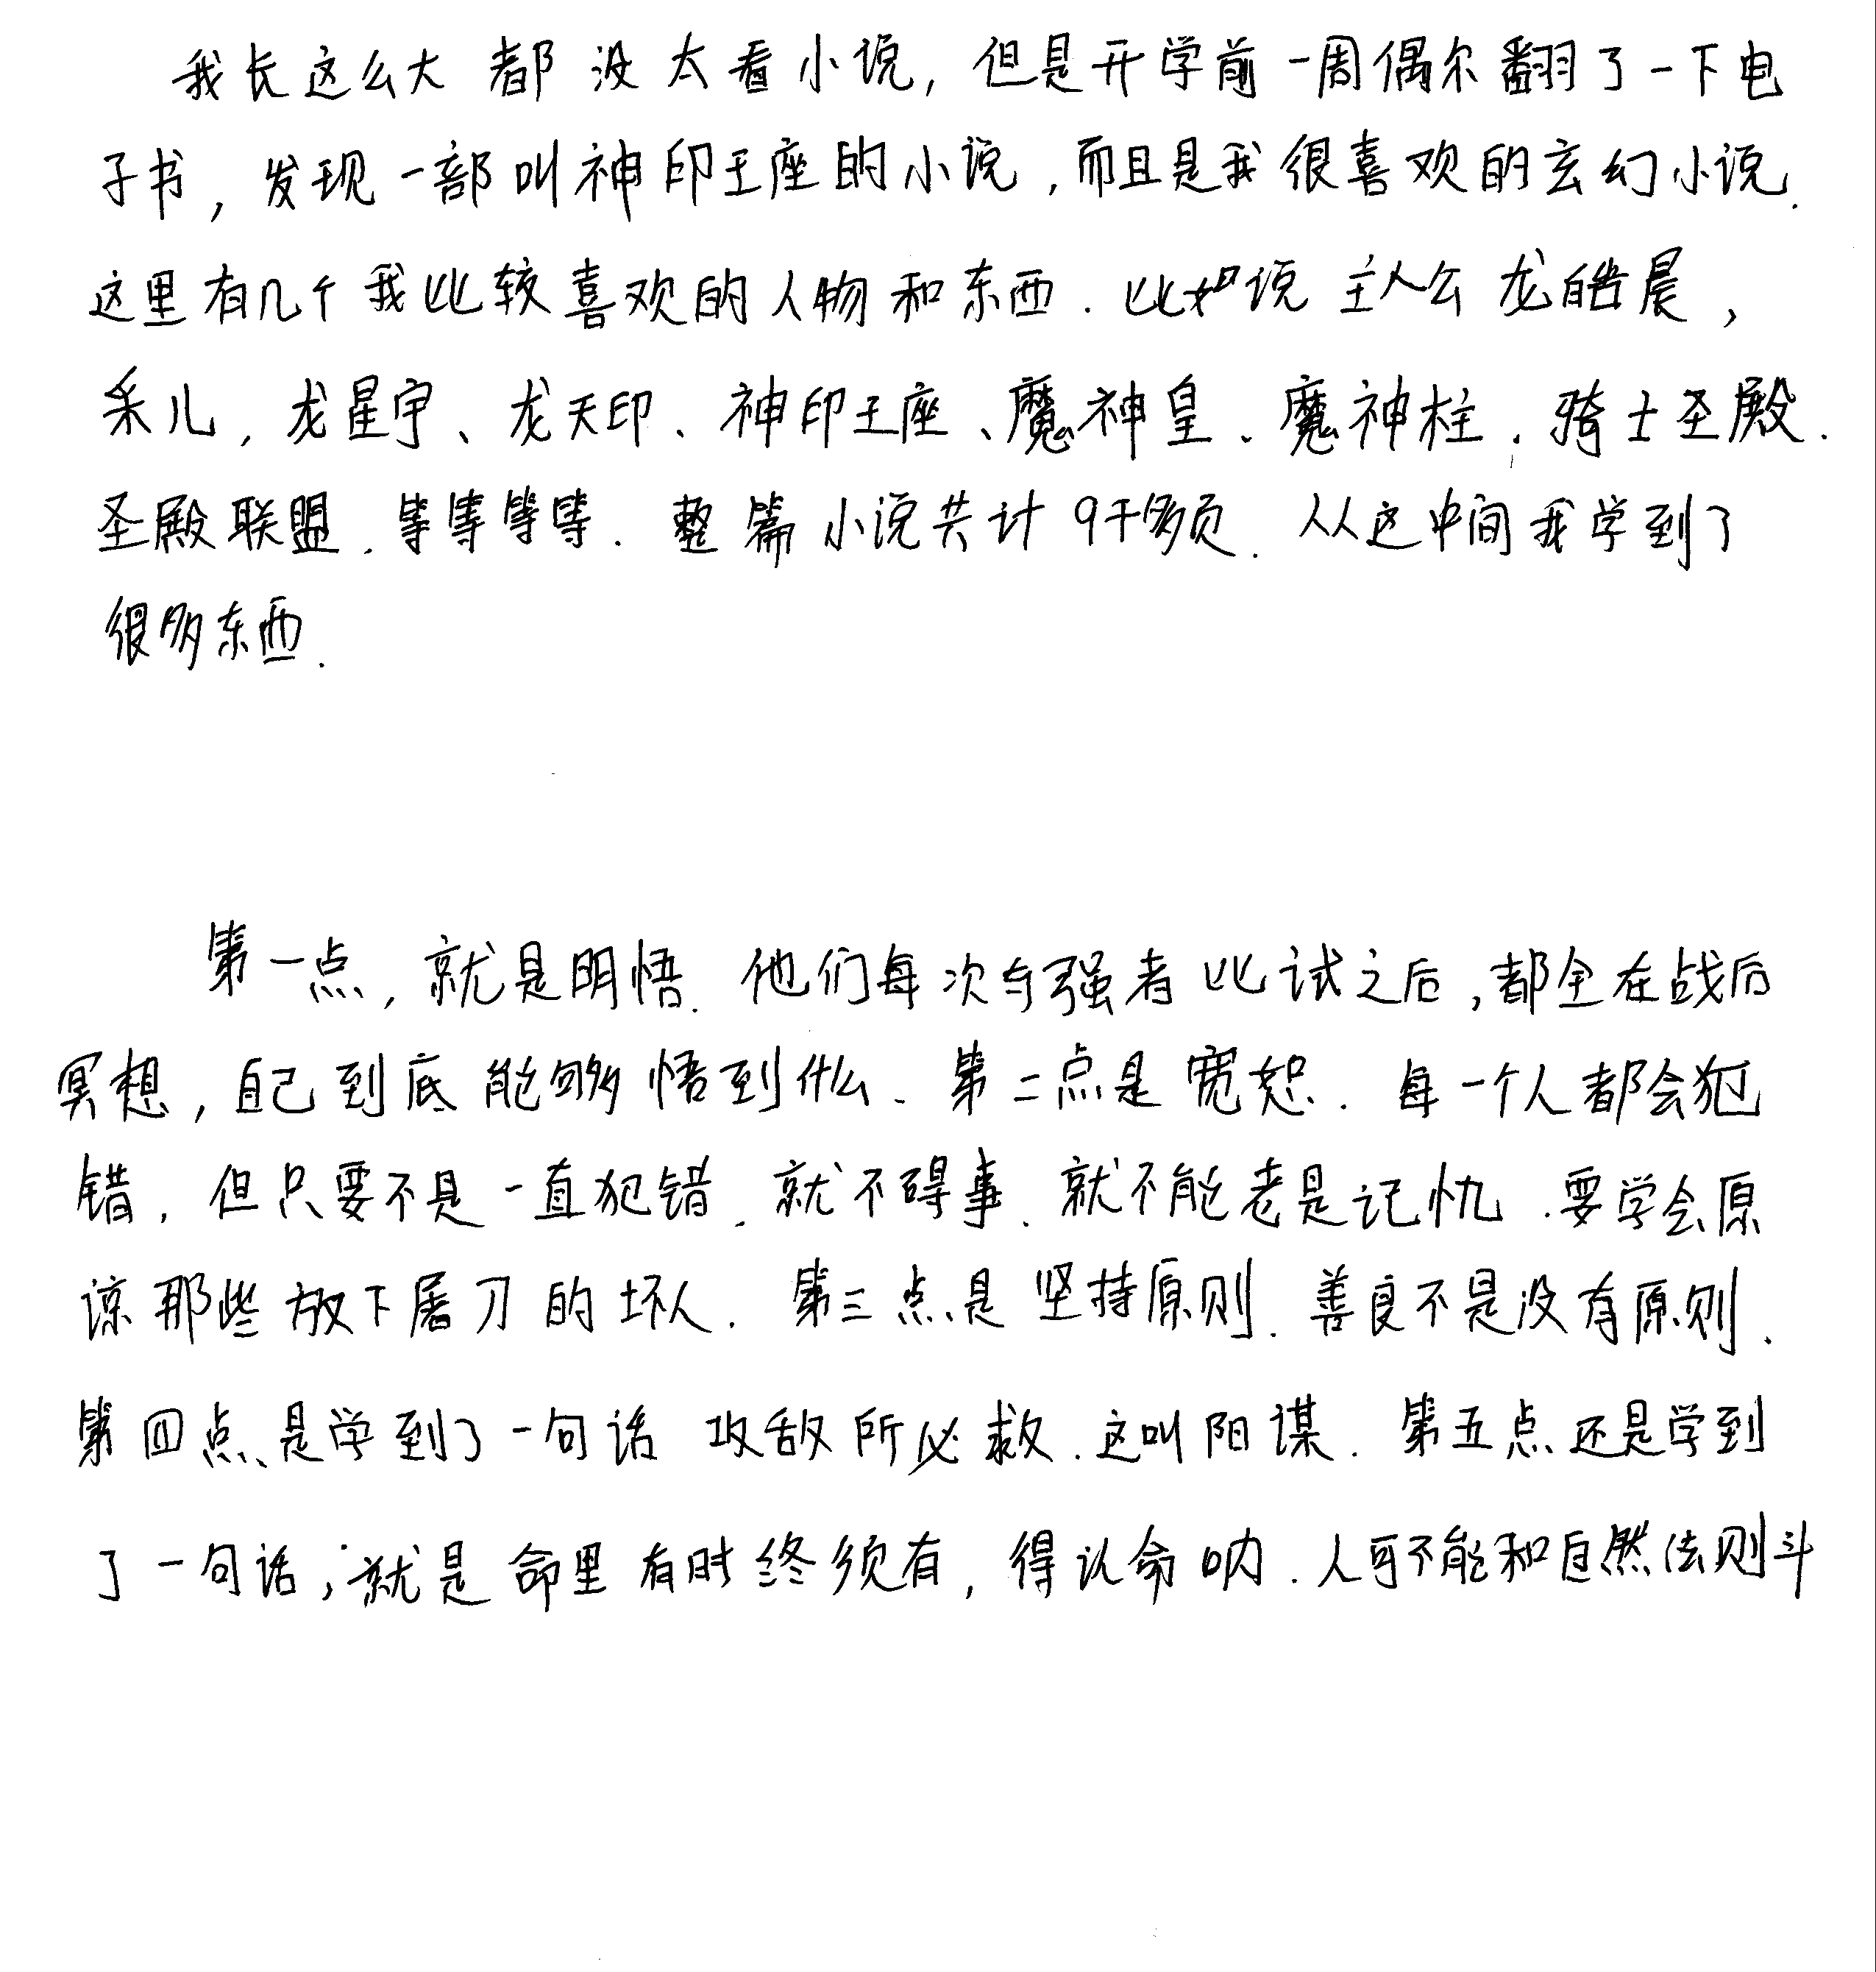 我长这么大都没太看小说,但是开学前一周偶尔翻了一下电
子书,发现一部叫神印王座的小说,而且是我很喜欢的玄幻小说.
这里有几个我比较喜欢的人物和东西.比如说主人公龙皓晨,
采儿,龙星宇、龙天印、神印王座、魔神皇、魔神柱,骑士圣殿.
圣殿联盟,等等等等.整篇小说共计9千多页.从这中间我学到了
很多东西.
第一点,就是明悟.他们每次与强者比试之后,都会在战后
冥想,自己到底能够悟到什么、第二点是宽恕.每一个人都会犯
错,但只要不是一直犯错、就不碍事、就不能老是记仇.要学会原
谅那些放下屠刀的坏人.第三点是坚持原则.善良不是没有原则、
第四点、是学到了一句话 攻敌所必救.这叫阳谋.第五点还是学到
了一句话;就是命里有时终须有,得认命呐.人可不能和自然法则斗